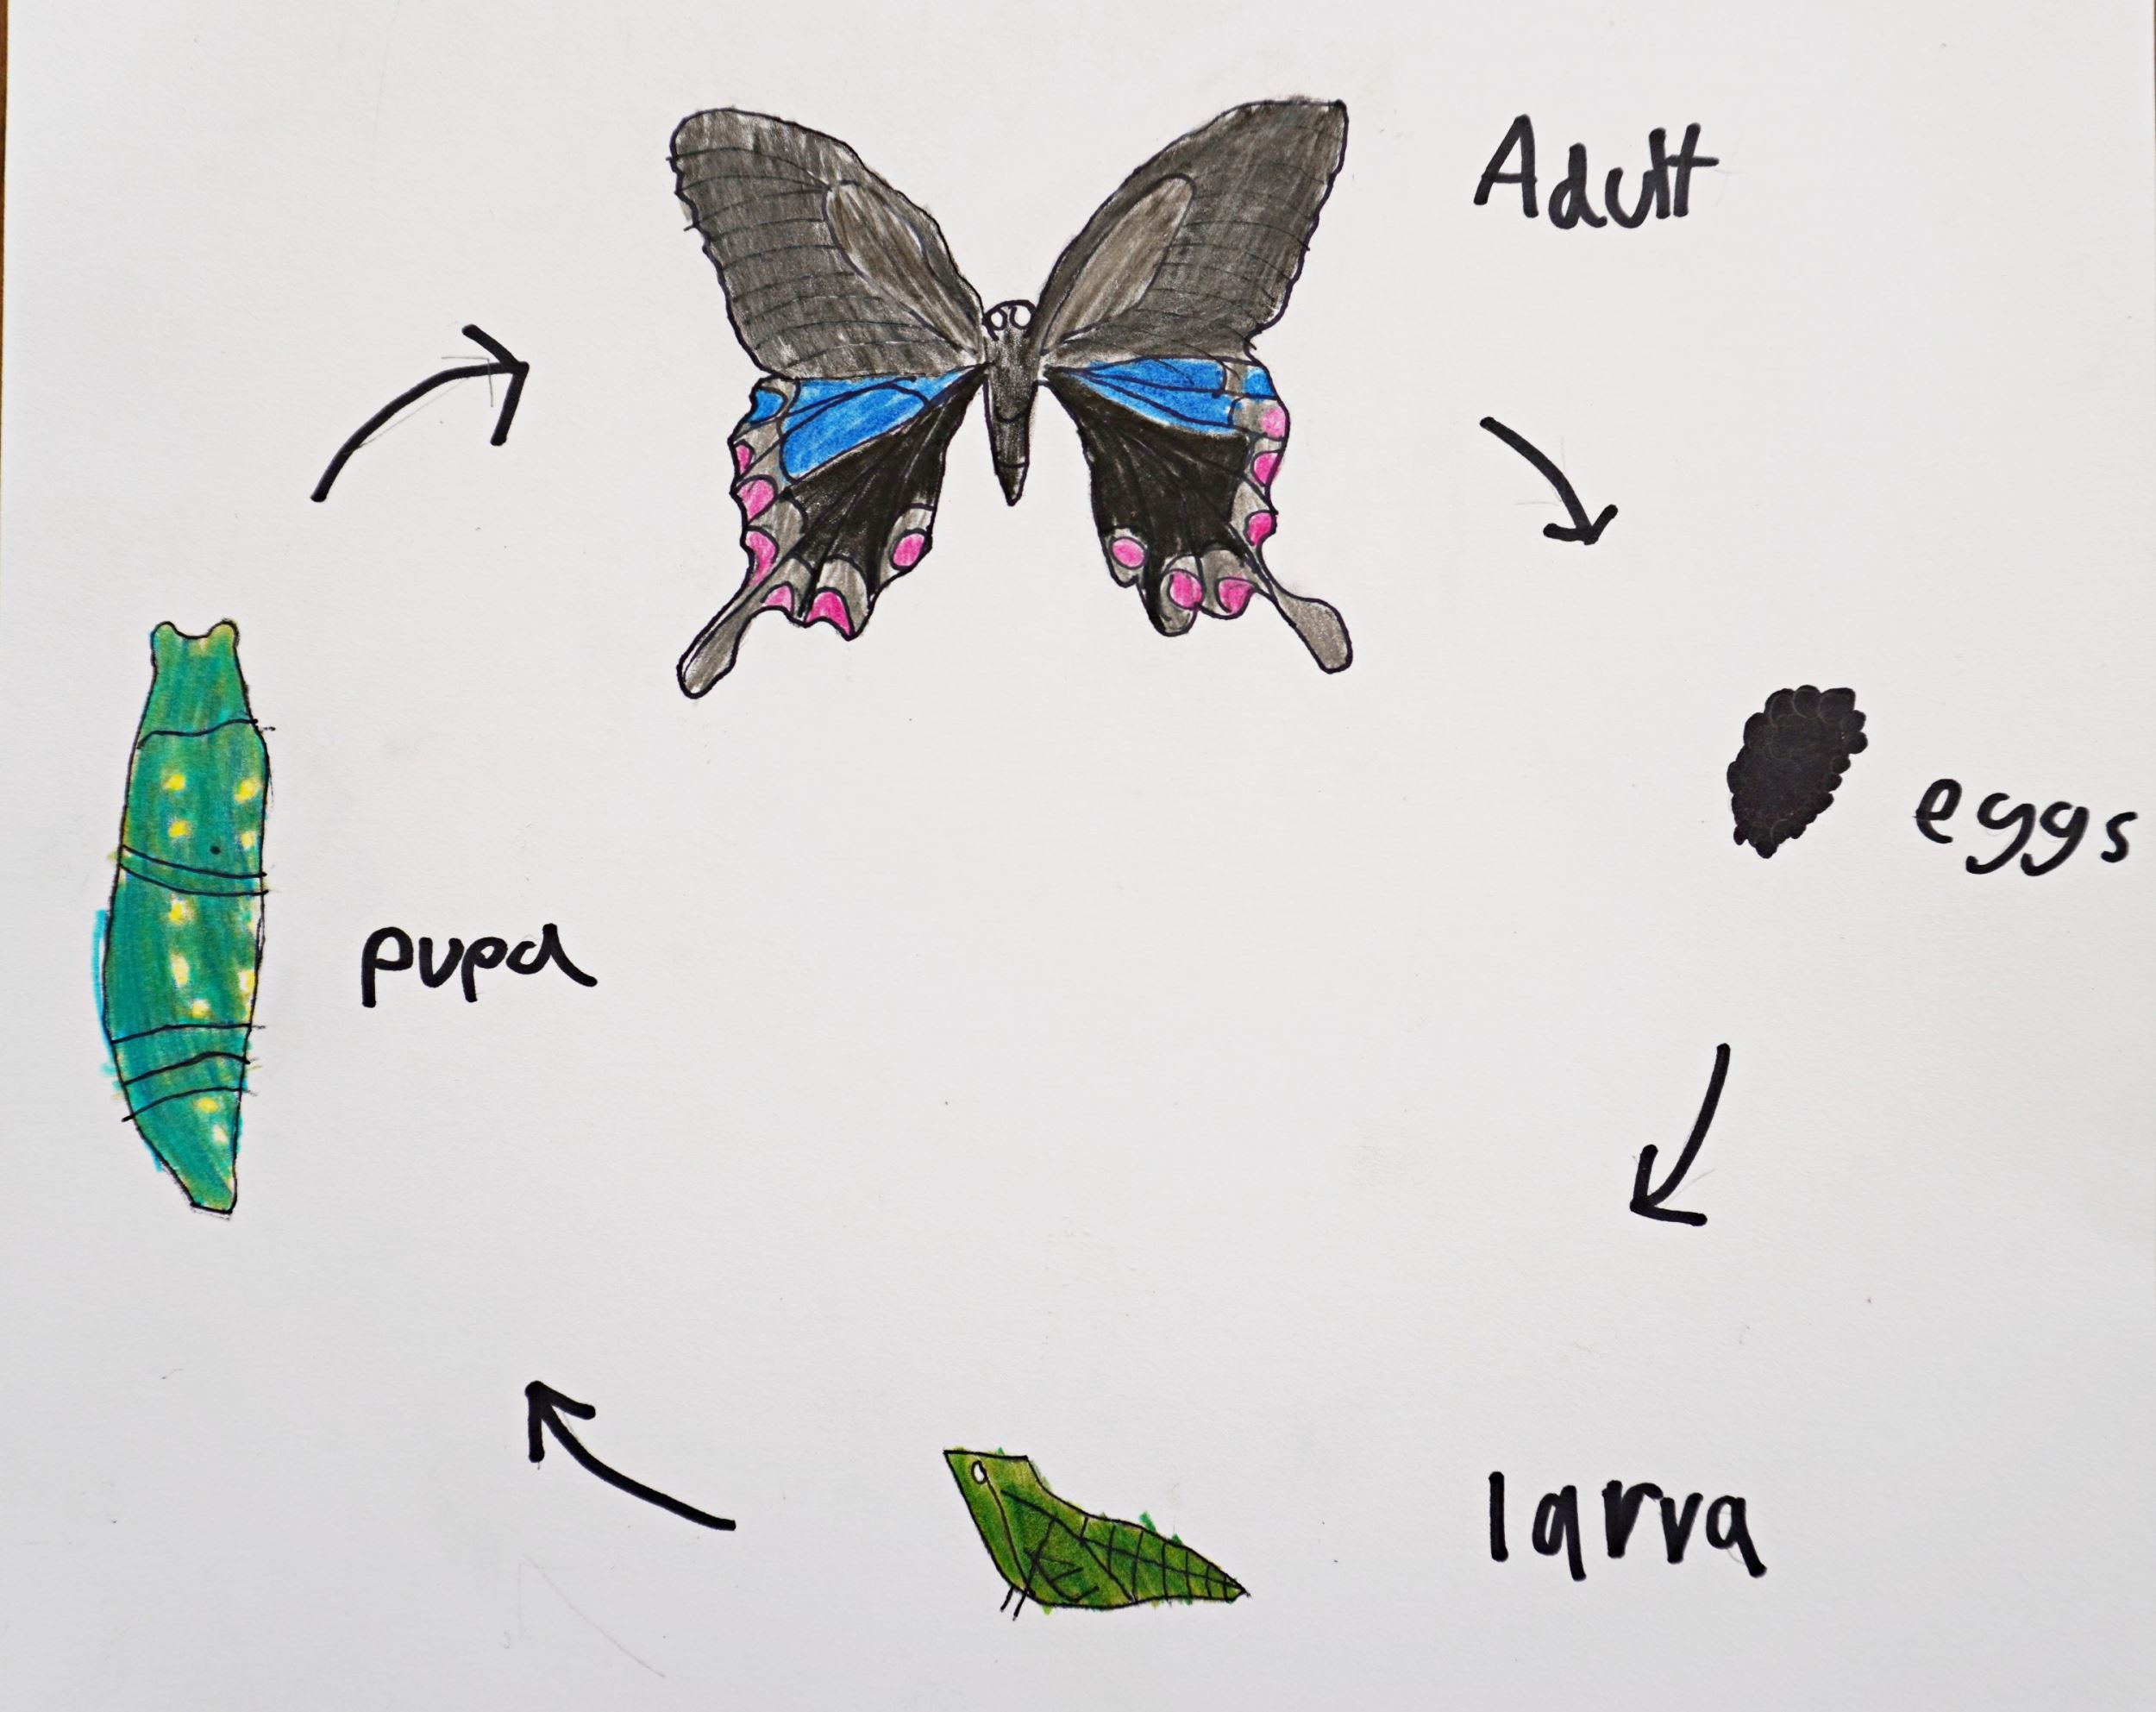 Adult
eggs
pupa
larva